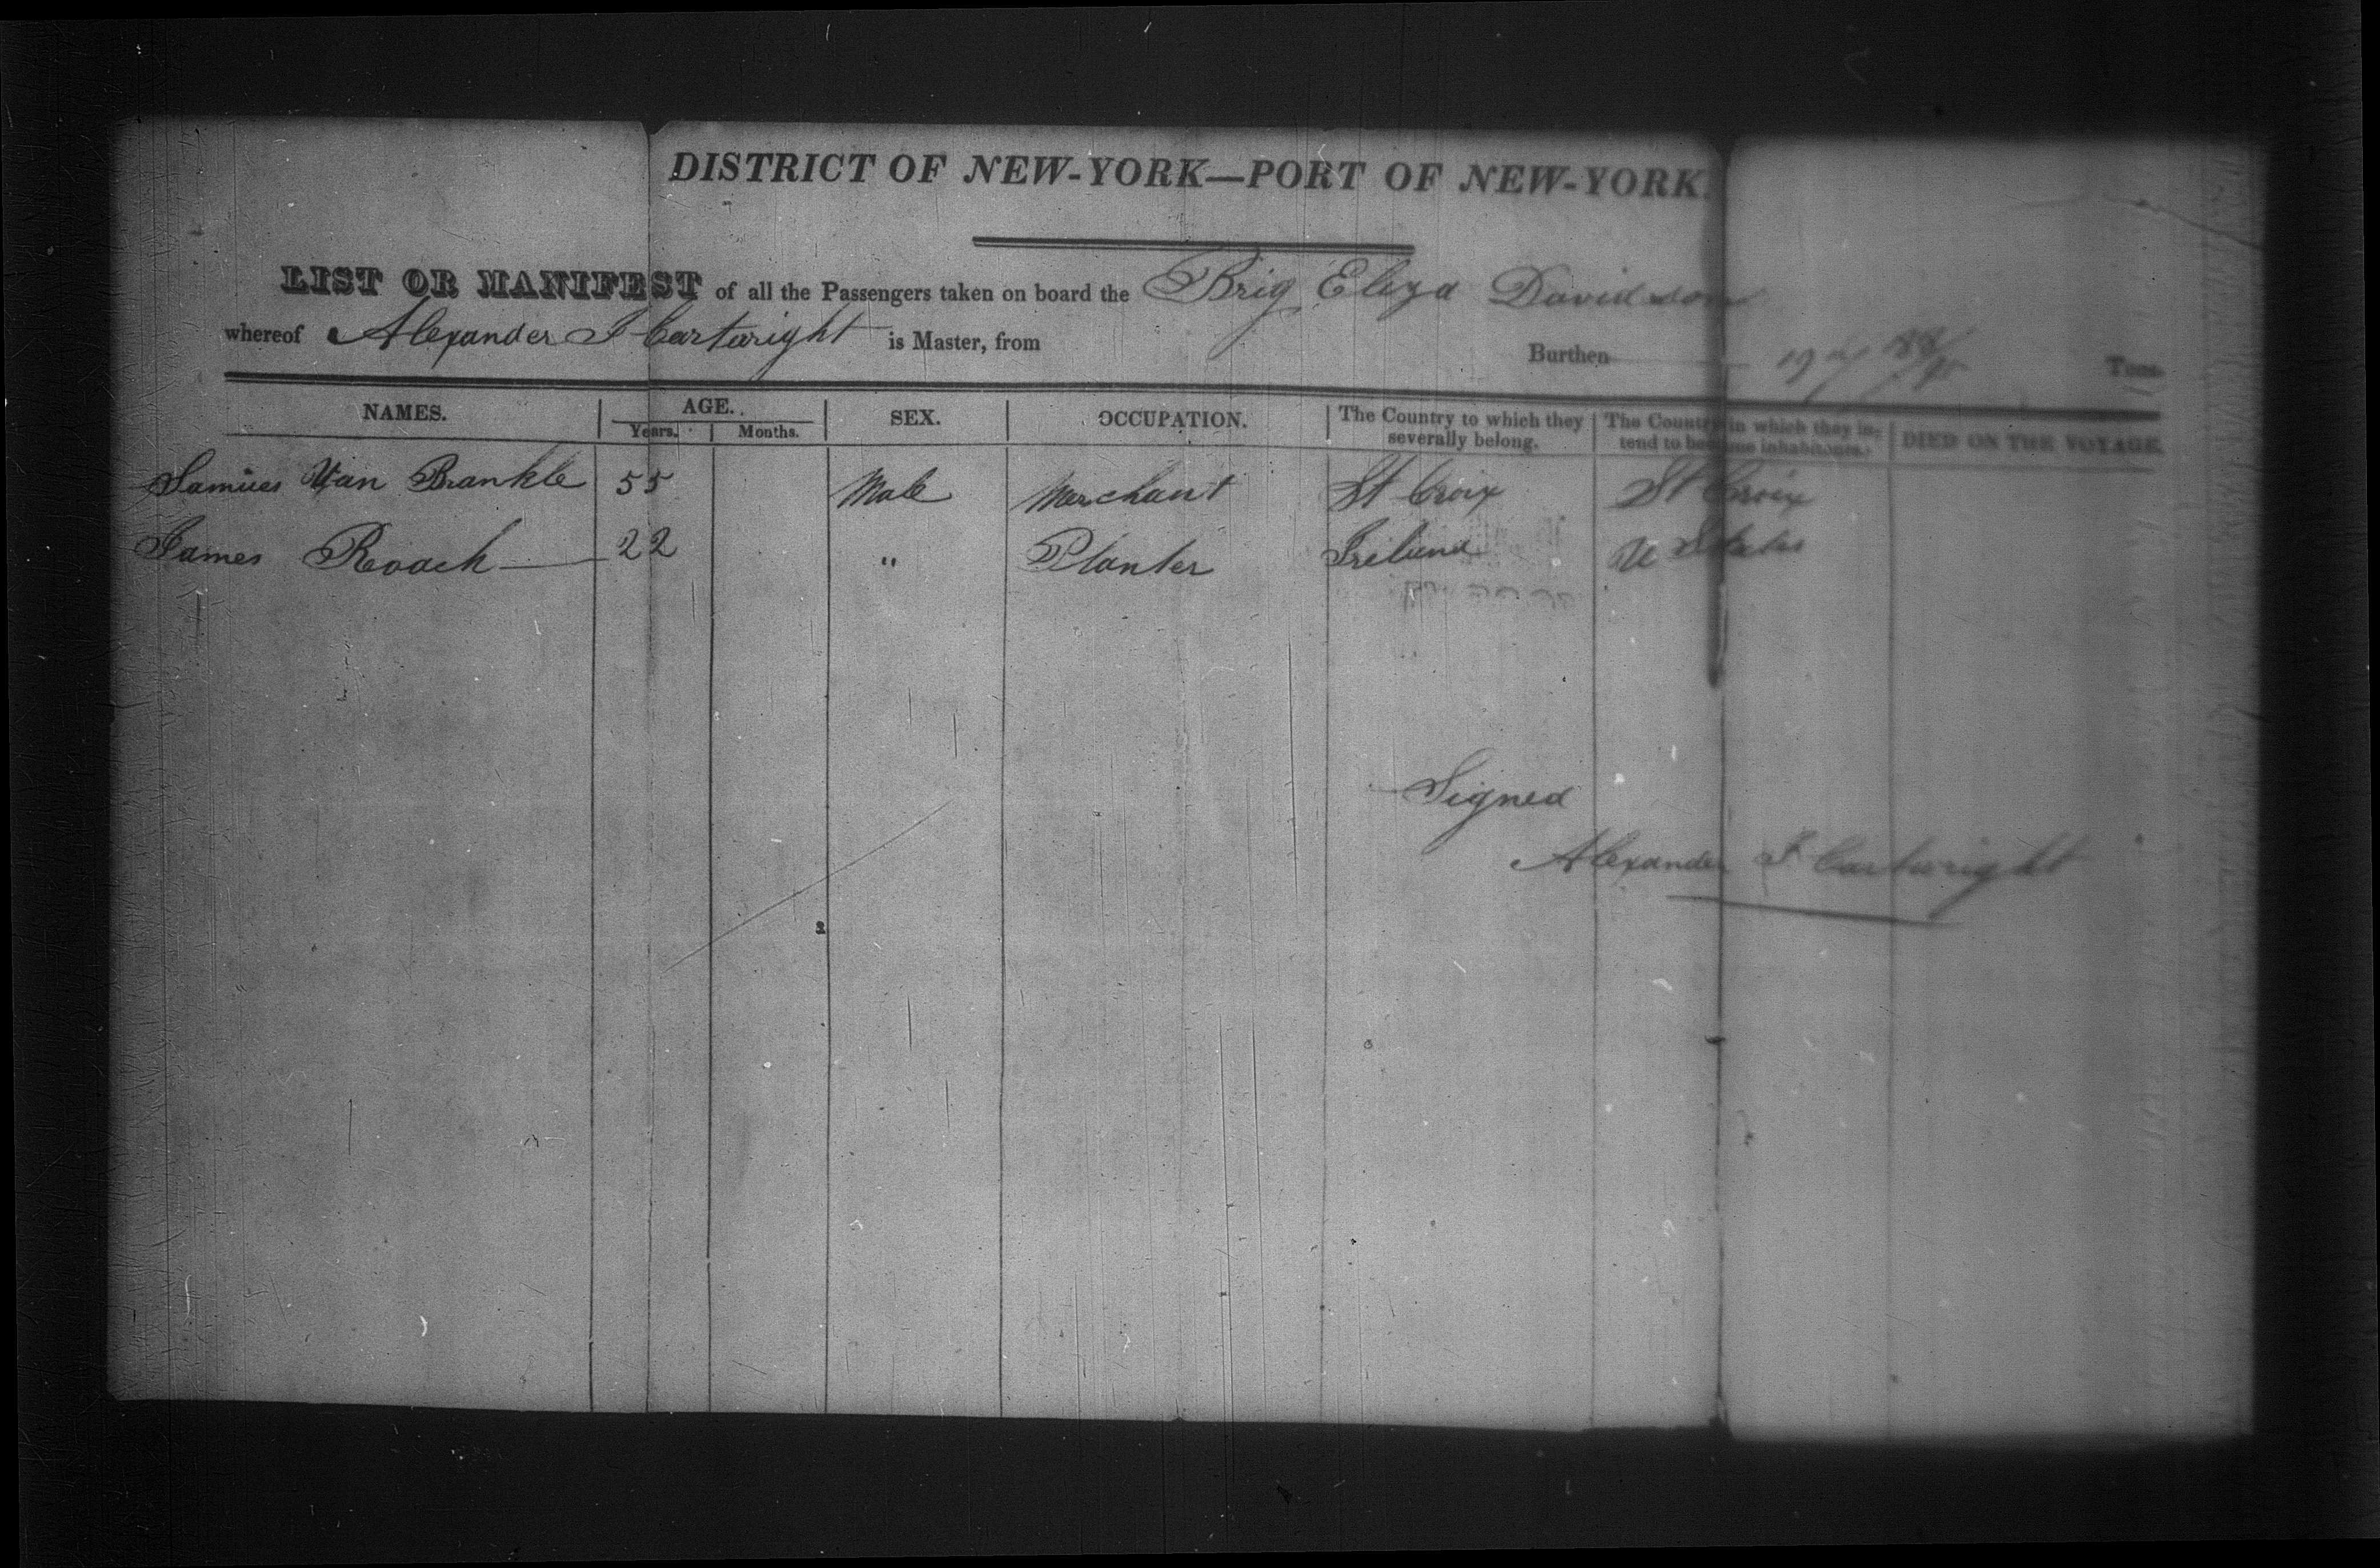 DISTRICT OF NEW-YORK—PORT OF NEW-YORK.
LIST OR MANIFEST of all the Passengers taken on board the Brig Eliza Davidson
whereof Alexander J Cartwright is Master, from Burthen Tons.
NAMES. AGE. SEX. OCCUPATION. The Country to which they severally belong. The Country in which they intend to become inhabitants. DIED ON THE VOYAGE.
Years. Months.
Samuel Van Brankle 55 Male Merchant St Croix St Croix
James Roach 22 " Planter Ireland U States
Signed
Alexander J Cartwright